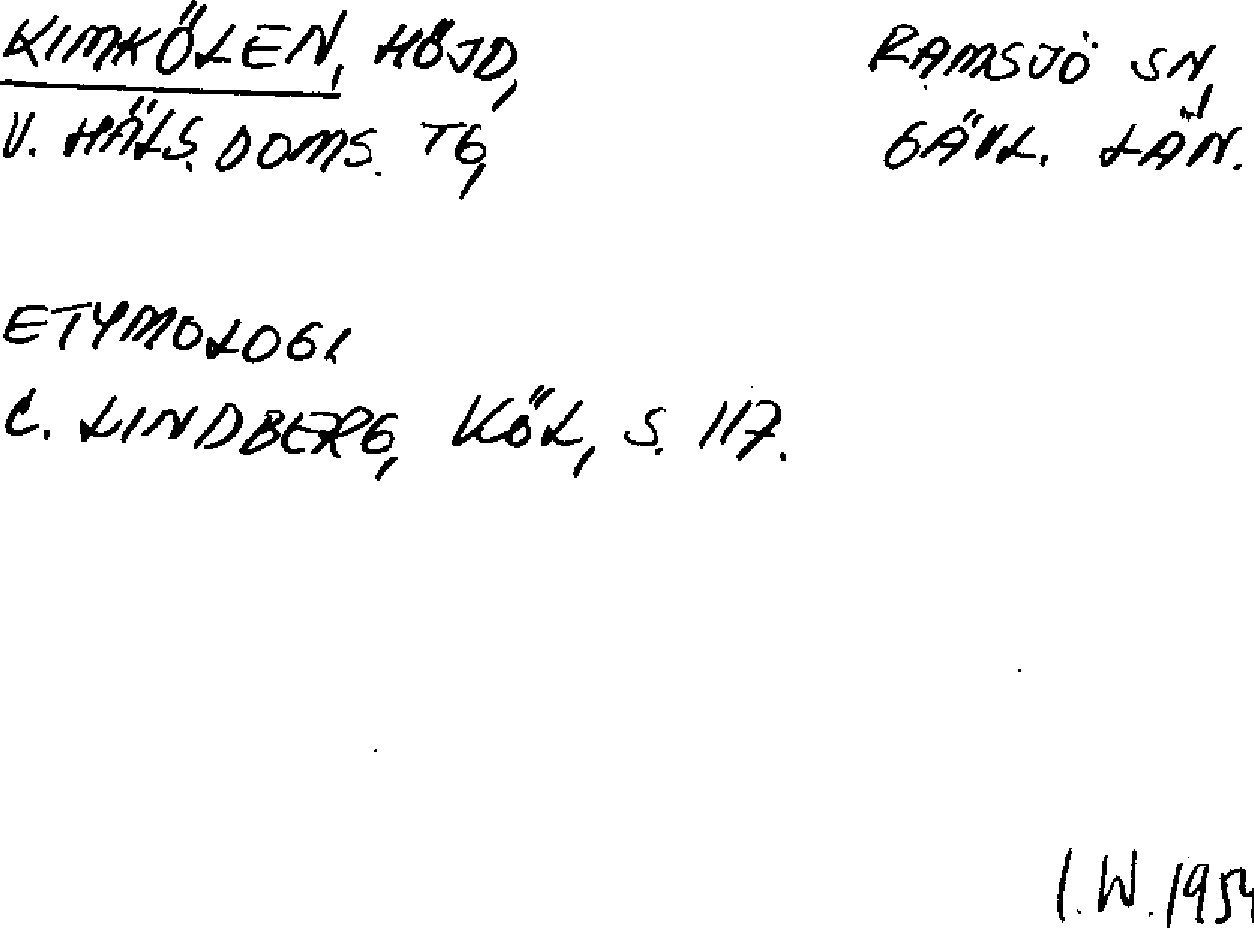 KIMKÖLEN, HÖJD, RAMSJÖ SN,
V. HÄLS. DOMS. TG, GÄVL. LÄN.
ETYMOLOGI
C. LINDBERG, KÖL, S. 117.
I. W. 1954